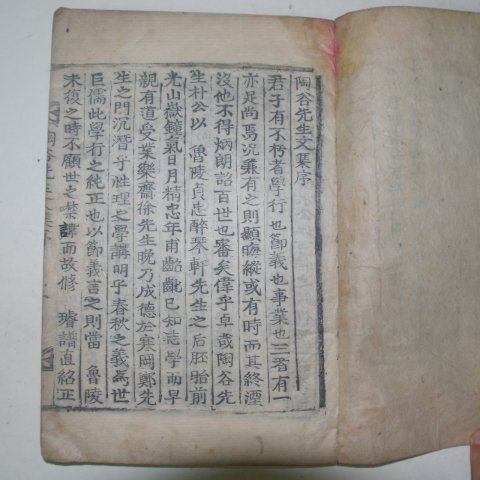 陶谷先生文集序
君子有不朽者學行也節義也事業也三者有一
亦是尚焉況兼有之則顯晦縱或有時而其終湮
沒他不得炳朗詔百世也審矣偉乎卓哉陶谷先
生朴公以 魯陵貞忠醉琴軒先生之后胚胎前
光山嶽鐘氣日月精忠年甫齠齔已知志學而早
親有道受業樂齋徐先生晚乃成德於寒岡鄭先
生之門沉潛乎性理之學講明乎春秋之義爲世
巨儒此學行之純正也以節義言之則當 魯陵
未復之時不顧世之禁諱而故修 璿譜直紹正